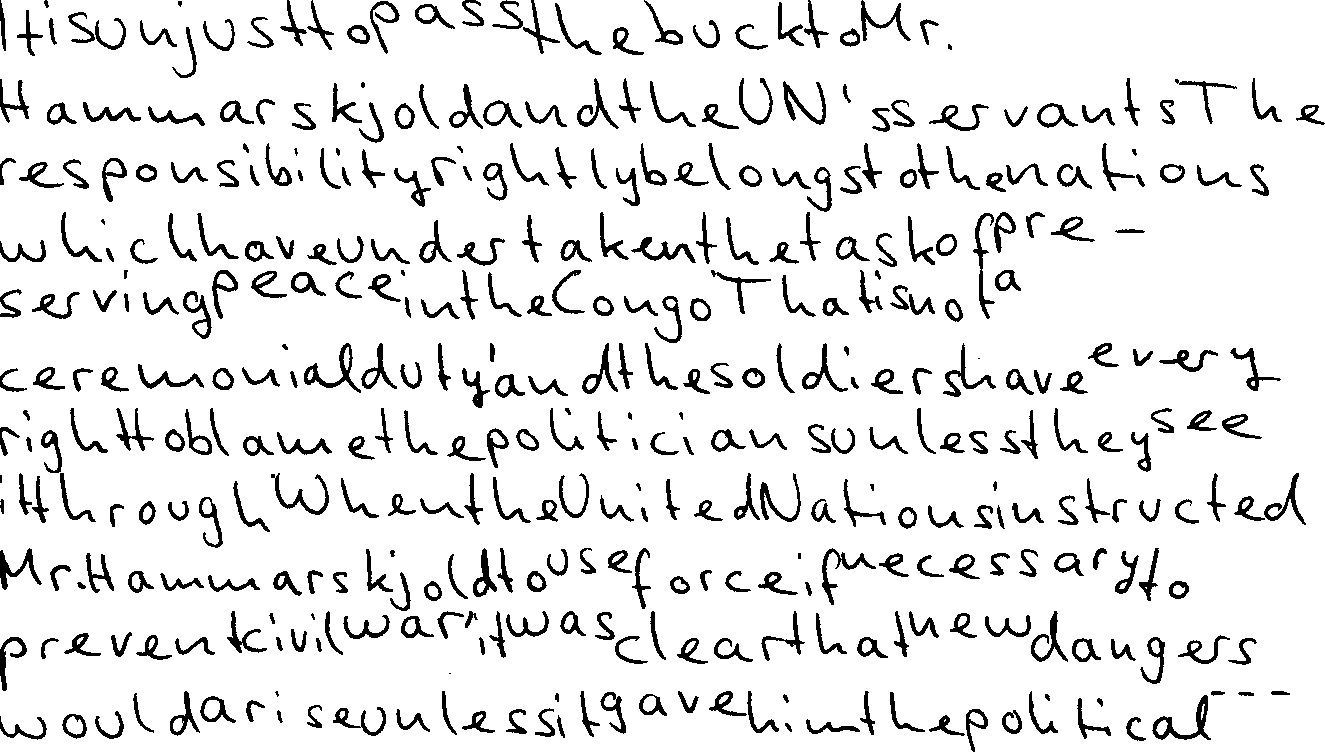 It is unjust to pass the buck to Mr.
Hammarskjold and the UN's servants The
responsibility rightly belongs to the nations
which have undertaken the task of pre-
serving peace in the Congo That is not a
ceremonial duty' and the soldiers have every
right to blame the politicians unless they see
it through When the United Nations instructed
Mr. Hammarskjold to use force if necessary to
prevent civil war" it was clear that new dangers
would arise unless it gave him the political ---